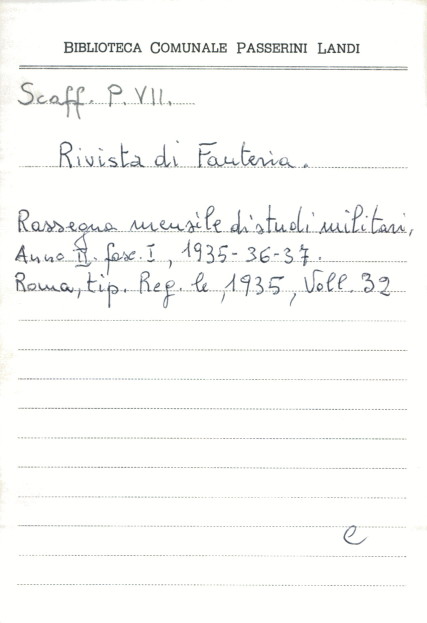 BIBLIOTECA COMUNALE PASSERINI LANDI
Scaff. P. VII.
Rivista di Fanteria.
Rassegna mensile di studi militari,
Anno II. fasc. I, 1935-36-37.
Roma, tip. Reg. le, 1935, Voll. 32
e